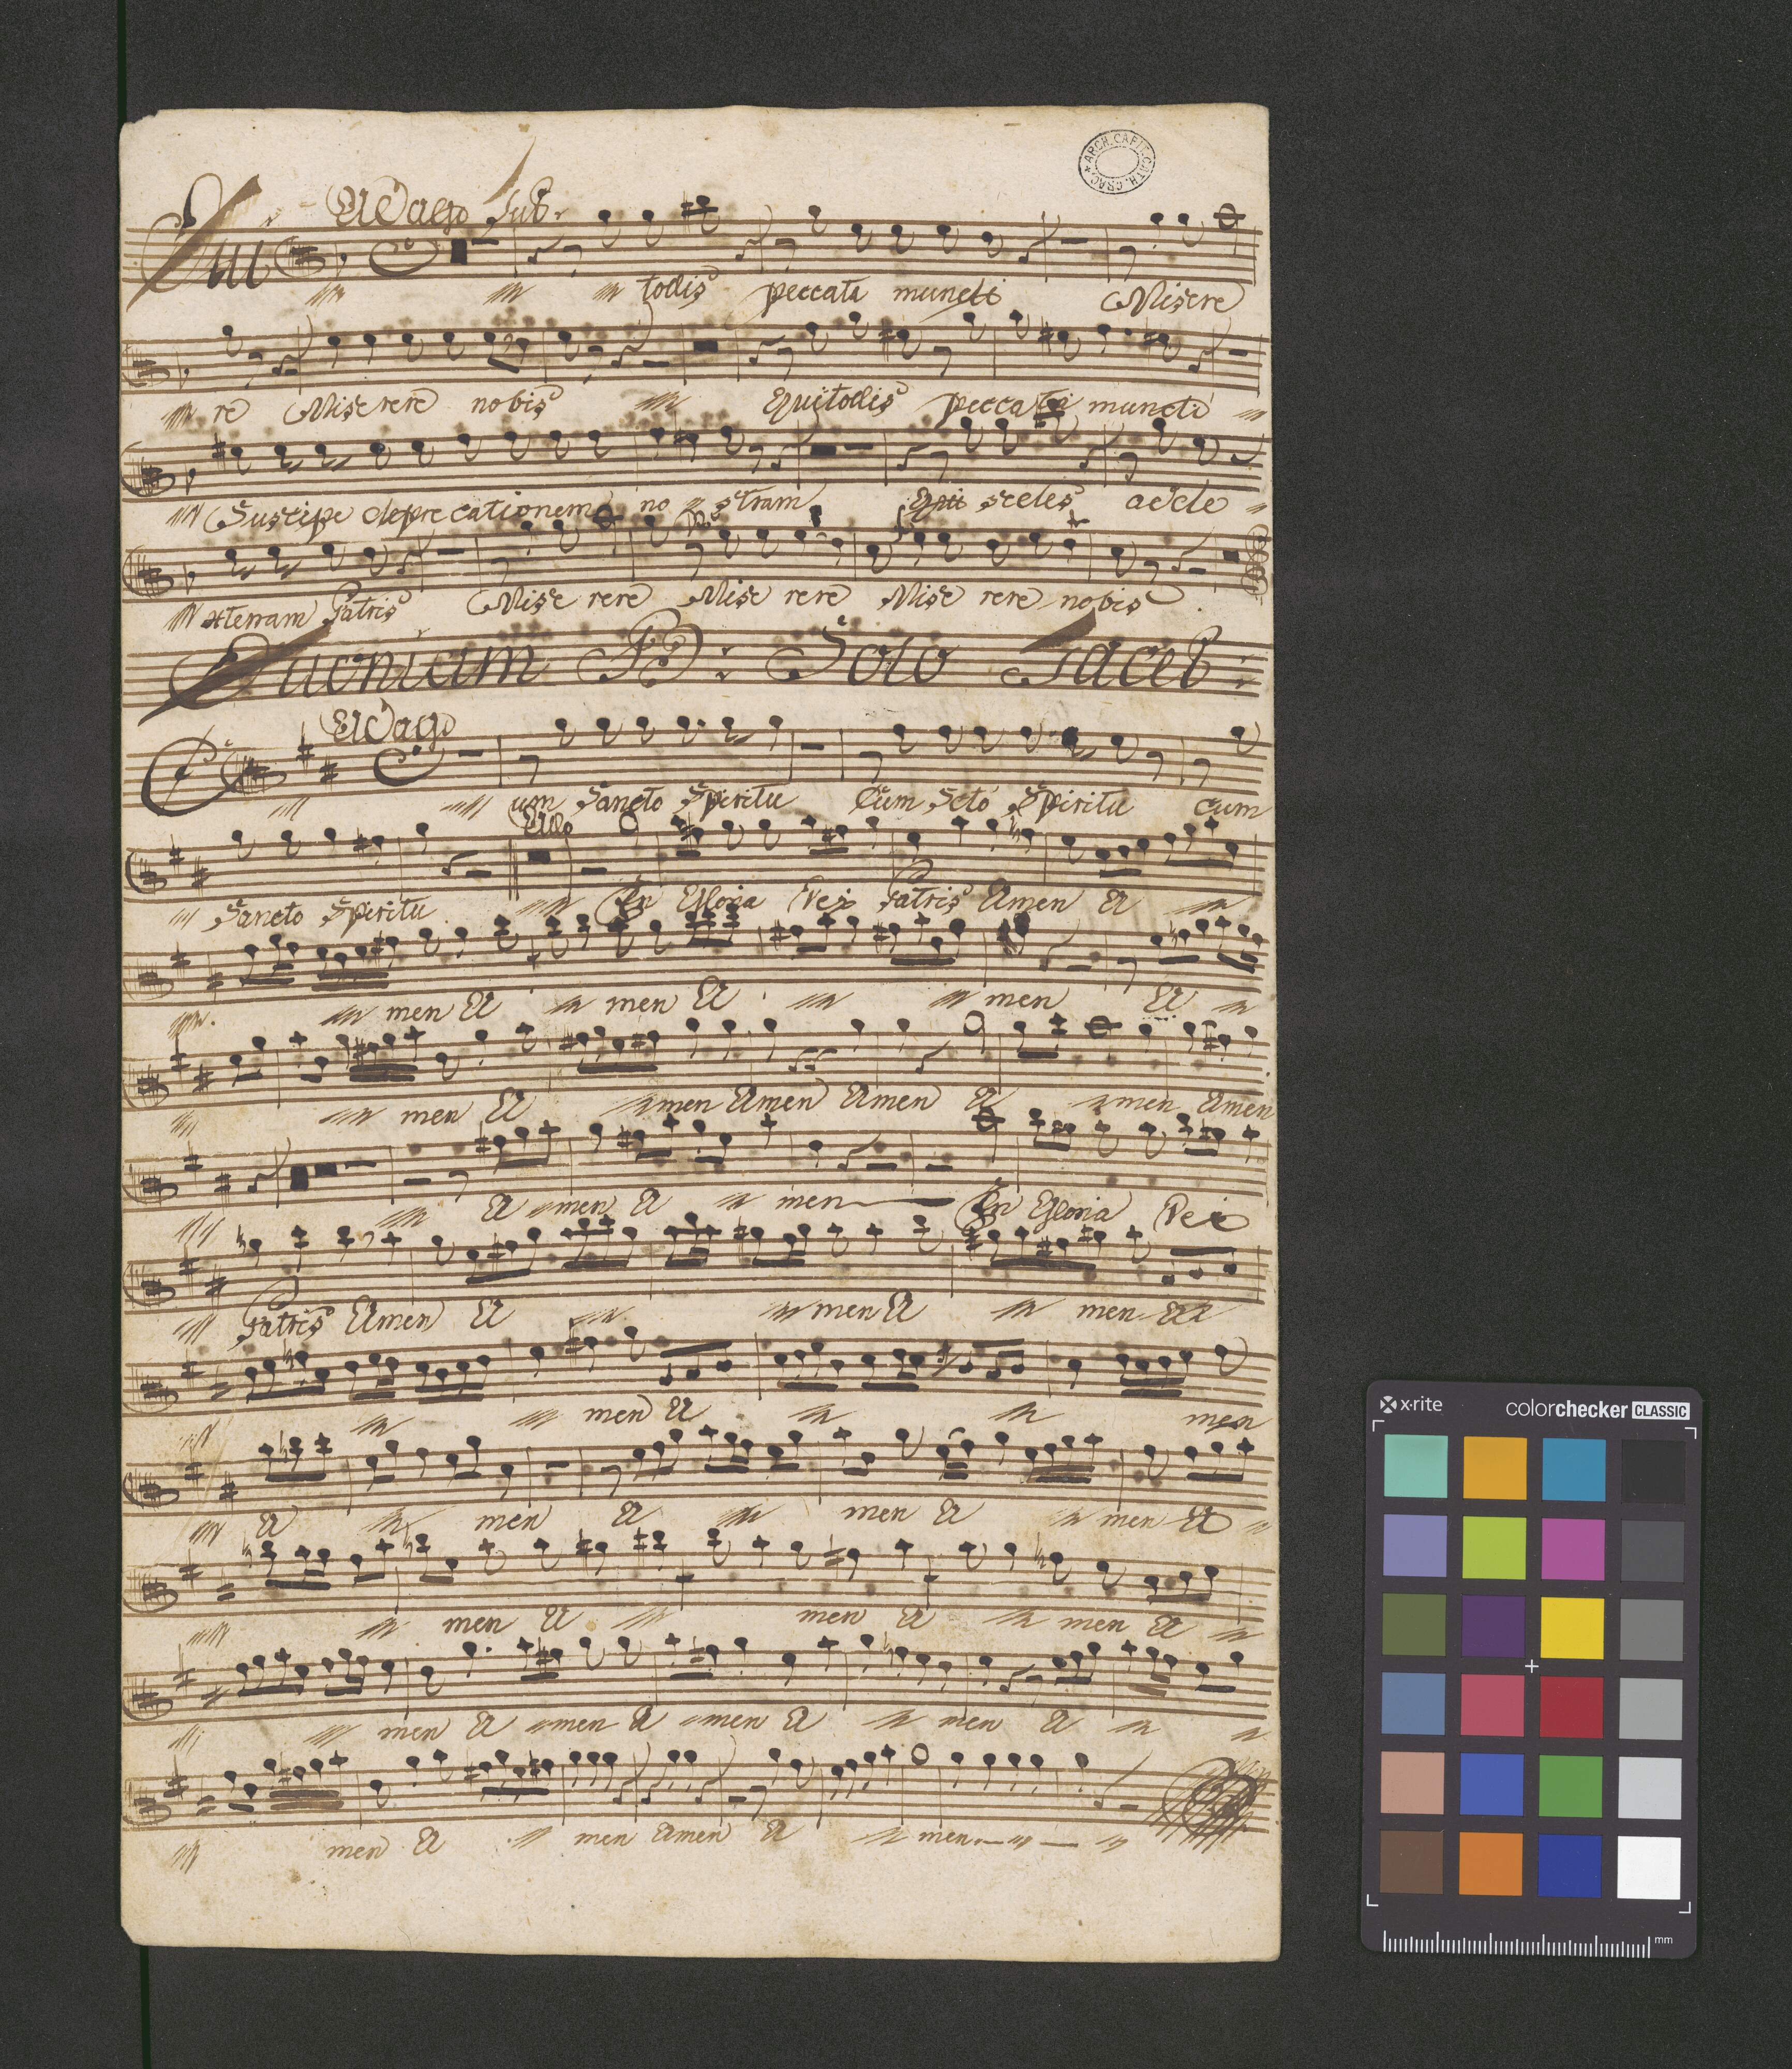 ARCH. CAPIT. CATH. CRAC.
Adago Sub.
Qui todis peccata mundi Misere
re Miserere nobis Qui todis peccata mundi
Suscipe deprecationem nostram Qui sedes adde
xterram Patris Misere rere Mise rere Mise rere nobis
Quoniam B: Solo Tacet:
Adago
Cum Sancto Spiritu Cum Scto Spiritu cum
Allo
Sancto Spiritu In Gloria Dei Patris Amen A
men A men A men A
men A amen Amen Amen A amen Amen
A amen A men In Gloria Dei
Patris Amen A men A men A
men A men
A men A men A men A
men A men A men A
men A amen A amen A men A
men A men Amen A men
x·rite colorchecker CLASSIC
mm